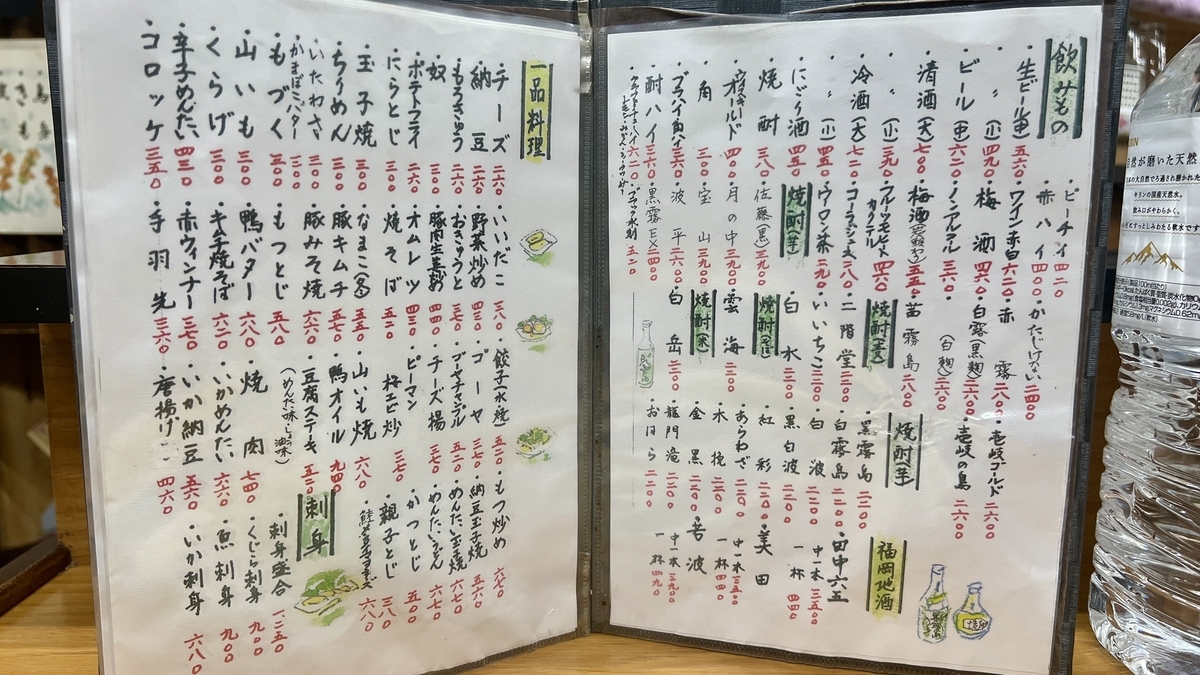 飲みもの
・生ビール(中) 五六〇
・〃(小) 四九〇
・ビール(中) 六二〇
・清酒(大) 七〇〇
・〃(小) 三九〇
・冷酒(大) 七二〇
・〃(小) 四五〇
・にごり酒 四五〇
・焼酎 三八〇
・ウイスキーオールド 四〇〇
・角 三〇〇
・酎ハイ 三六〇
・ピーチイ 四二〇
・赤ハイ 四〇〇
・ワイン赤白 六二〇
・梅酒 四六〇
・ノンアルコール 三六〇
・フルーツモヒート カクテル 四六〇
・コーラジュース 二八〇
・ウーロン茶 二九〇
焼酎(芋)
・佐藤(黒) 三九〇
・月の中 三九〇〇
・宝山 二九〇〇
・波平 二六〇〇
・黒霧EX 二四〇〇
・かたじけない 二四〇〇
・赤霧 二八〇〇
・白露(黒麹) 二六〇〇
・〃(白麹) 二六〇〇
・茜霧島 二八〇〇
焼酎(麦)
・二階堂 二二〇〇
・いいちこ 二二〇〇
・白水 二三〇〇
焼酎(そば)
・雲海 二二〇〇
焼酎(米)
・白岳 二三〇〇
・壱岐ゴールド 二六〇〇
・壱岐の島 二六〇〇
焼酎(芋)
・黒霧島 二二〇〇
・白霧島 二二〇〇
・白波 二二〇〇
・黒白波 二二〇〇
・紅彩 二二〇〇
・あらわざ 二二〇〇
・木挽 二二〇〇
・金黒 二二〇〇
・龍門滝 二二〇〇
・おはら 二二〇〇
福岡地酒
・田中六五
中一本 三五〇〇
一杯 四四〇
・美田
中一本 三五〇〇
一杯 四四〇
・若波
中一本 三九〇〇
一杯 四九〇
一品料理
・チーズ 二六〇
・納豆 二六〇
・もろきゅう 二六〇
・奴 二六〇
・ポテトフライ 二六〇
・にらとじ 三〇〇
・玉子焼 三〇〇
・ちりめん 三〇〇
・いたわさ 三〇〇
・かまぼこバター 三〇〇
・もづく 三〇〇
・山いも 三〇〇
・くらげ 三〇〇
・辛子めんたい 四三〇
・コロッケ 三五〇
・いいだこ 三八〇
・野菜炒め 四三〇
・おきゅうと 三五〇
・豚肉生姜炒 四三〇
・オムレツ 四三〇
・焼そば 五二〇
・なまこ(冬) 四五〇
・豚キムチ 五七〇
・豚みそ焼 六六〇
・もつとじ 五八〇
・鴨バター 六八〇
・キムチ焼そば 六二〇
・赤ウィンナー 三七〇
・手羽先 三六〇
・餃子(水・焼) 五二〇
・ゴーヤ 三七〇
・ゴーヤチャンプル 五二〇
・チーズ揚 三七〇
・ピーマン
桜エビ炒 三七〇
・山いも焼 六八〇
・鴨オイル 九四〇
・豆腐ステーキ 五二〇
(めんたい味・しょう油味)
・焼肉 七四〇
・いかめんたい 六六〇
・いか納豆 五六〇
・唐揚げ 四六〇
・もつ炒め 六七〇
・納豆玉子焼 五六〇
・めんたい玉子焼 六七〇
・めんたいうどん 六七〇
・かつとじ 五〇〇
・親子とじ 三八〇
刺身
・刺身盛合 一、二五〇
・くじら刺身 九〇〇
・魚刺身 九〇〇
・いか刺身 六八〇
自然が磨いた天然
キリンの国産天然水。